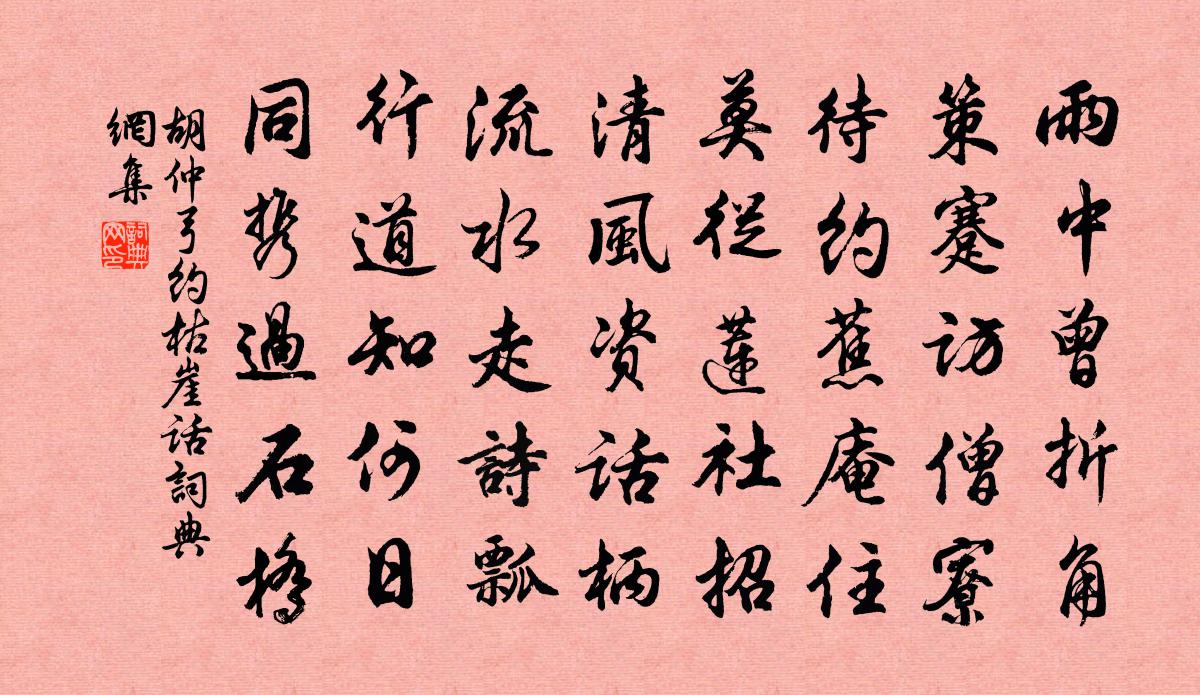 雨中曾折角
策蹇訪僧寮
待約蕉庵住
莫從蓮社招
清風資話柄
流水走詩瓢
行道知何日
同携過石橋
胡仲弓約枯崖話詞典
網集
詞典
網印